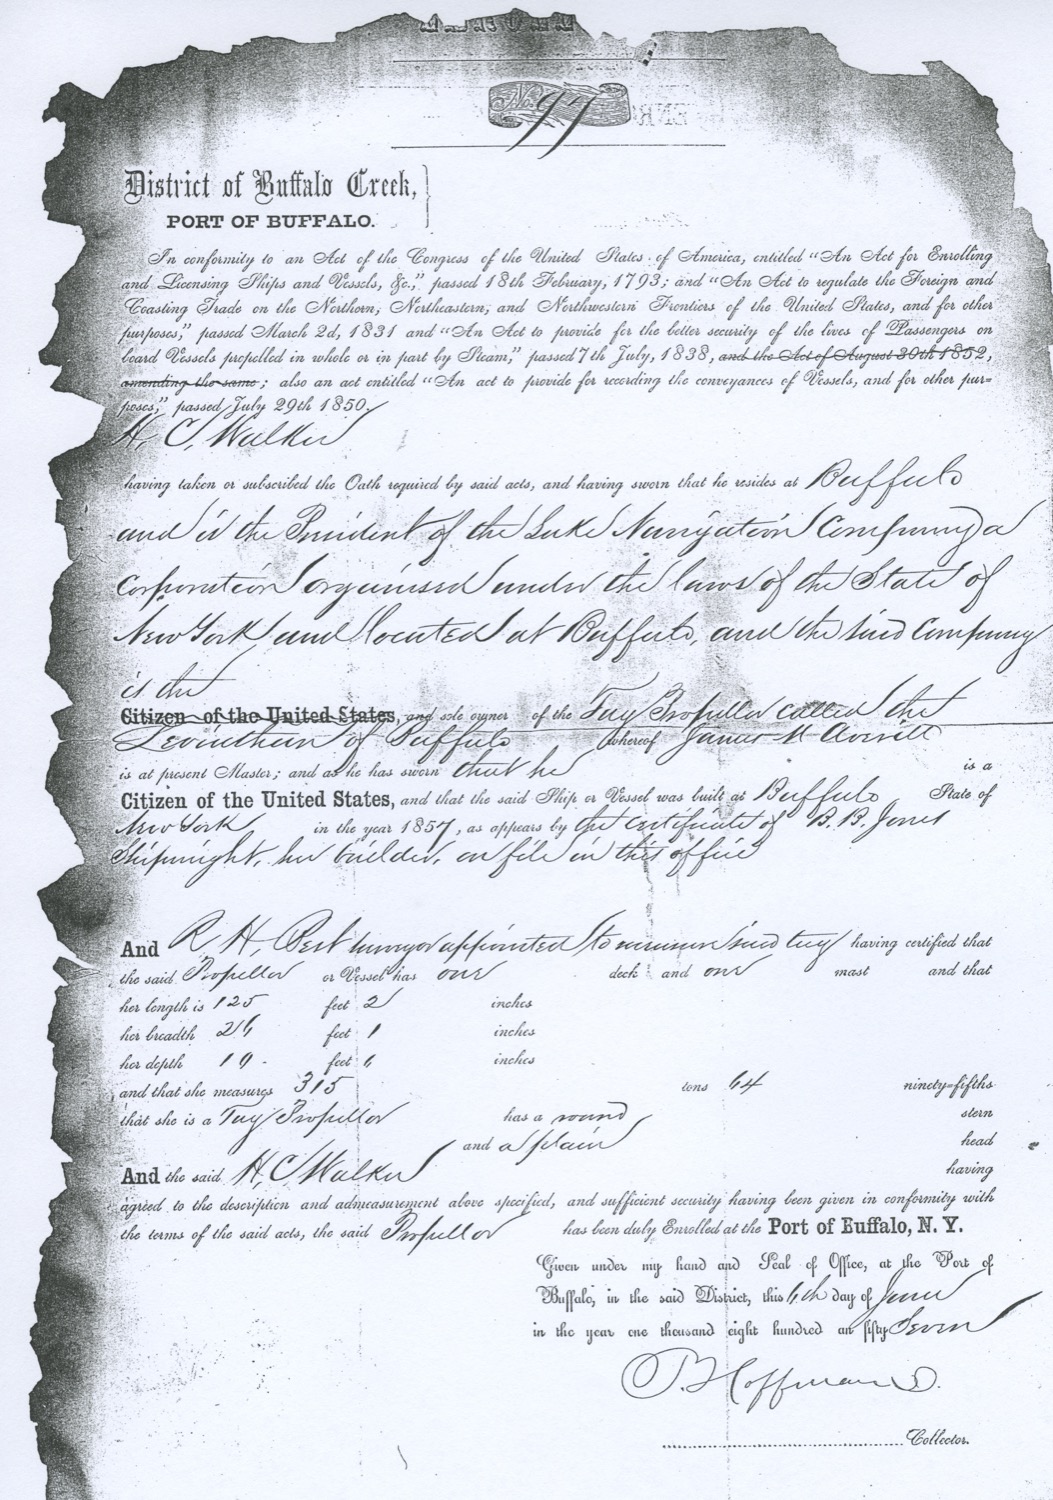 No. 97
District of Buffalo Creek,
PORT OF BUFFALO.
In conformity to an Act of the Congress of the United States of America, entitled "An Act for Enrolling
and Licensing Ships and Vessels, &c.," passed 18th February, 1793; and "An Act to regulate the Foreign and
Coasting Trade on the Northern, Northeastern, and Northwestern Frontiers of the United States, and for other
purposes," passed March 2d, 1831 and "An Act to provide for the better security of the lives of Passengers on
board Vessels propelled in whole or in part by Steam," passed 7th July, 1838, and the Act of August 30th 1852,
amending the same; also an act entitled "An act to provide for recording the conveyances of Vessels, and for other pur=
poses," passed July 29th 1850.
H. C. Walker
having taken or subscribed the Oath required by said acts, and having sworn that he resides at Buffalo
and is the President of the Lake Navigation Company a
corporation organised under the laws of the State of
New York and located at Buffalo, and the said Company
is the
Citizen of the United States, and sole owner of the Tug Propellor called the
Leviathan of Buffalo whereof James M Averill
is at present Master; and as he has sworn that he is a
Citizen of the United States, and that the said Ship or Vessel was built at Buffalo State of
New York in the year 1857, as appears by the certificate of B. B. Jones
Shipwright, her builder, on file in this office
And R. H. Best surveyor appointed to measure said tug having certified that
the said Propellor or Vessel has one deck and one mast and that
her length is 125 feet 2 inches
her breadth 26 feet 1 inches
her depth feet 6 inches
and that she measures 315 tons 64 ninety=fifths
that she is a Tug Propellor has a round stern
and a plain head
And the said H. C. Walker having
agreed to the description and admeasurement above specified, and sufficient security having been given in conformity with
the terms of the said acts, the said Propellor has been duly Enrolled at the Port of Buffalo, N. Y.
Given under my hand and Seal of Office, at the Port of
Buffalo, in the said District, this 6th day of June
in the year one thousand eight hundred an fifty Seven
Hoffman
Collector.